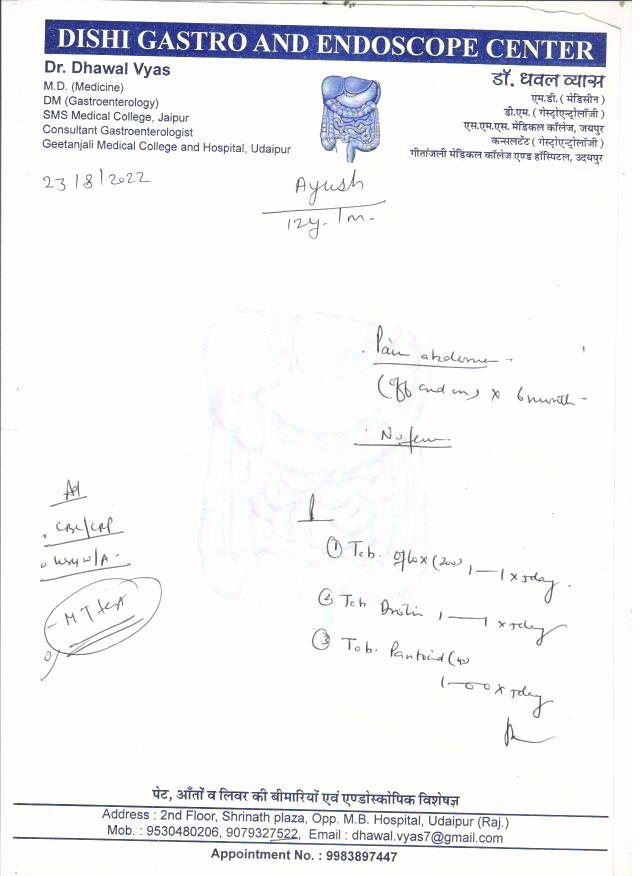 DISHI GASTRO AND ENDOSCOPE CENTER
Dr. Dhawal Vyas
M.D. (Medicine)
DM (Gastroenterology)
SMS Medical College, Jaipur
Consultant Gastroenterologist
Geetanjali Medical College and Hospital, Udaipur
डॉ. धवल व्यास
एम.डी. ( मेडिसीन )
डी.एम. ( गेस्ट्रोएन्ट्रोलॉजी )
एस.एम.एस. मेडिकल कॉलेज, जयपुर
कन्सलटेंट ( गेस्ट्रोएन्ट्रोलॉजी )
गीतांजली मेडिकल कॉलेज एण्ड हॉस्पिटल, उदयपुर
23/8/2022
Ayush
12y.
Pain abdomen
(off and on) x 6 month
No fever
CBC/CRP
MT test
① Tab. (200) 1—1 x 5day
② Tab 1—1 x 5day
③ Tab. (40
1—00 x 5day
पेट, आँतों व लिवर की बीमारियों एवं एण्डोस्कोपिक विशेषज्ञ
Address : 2nd Floor, Shrinath plaza, Opp. M.B. Hospital, Udaipur (Raj.)
Mob. : 9530480206, 9079327522, Email : dhawal.vyas7@gmail.com
Appointment No. : 9983897447